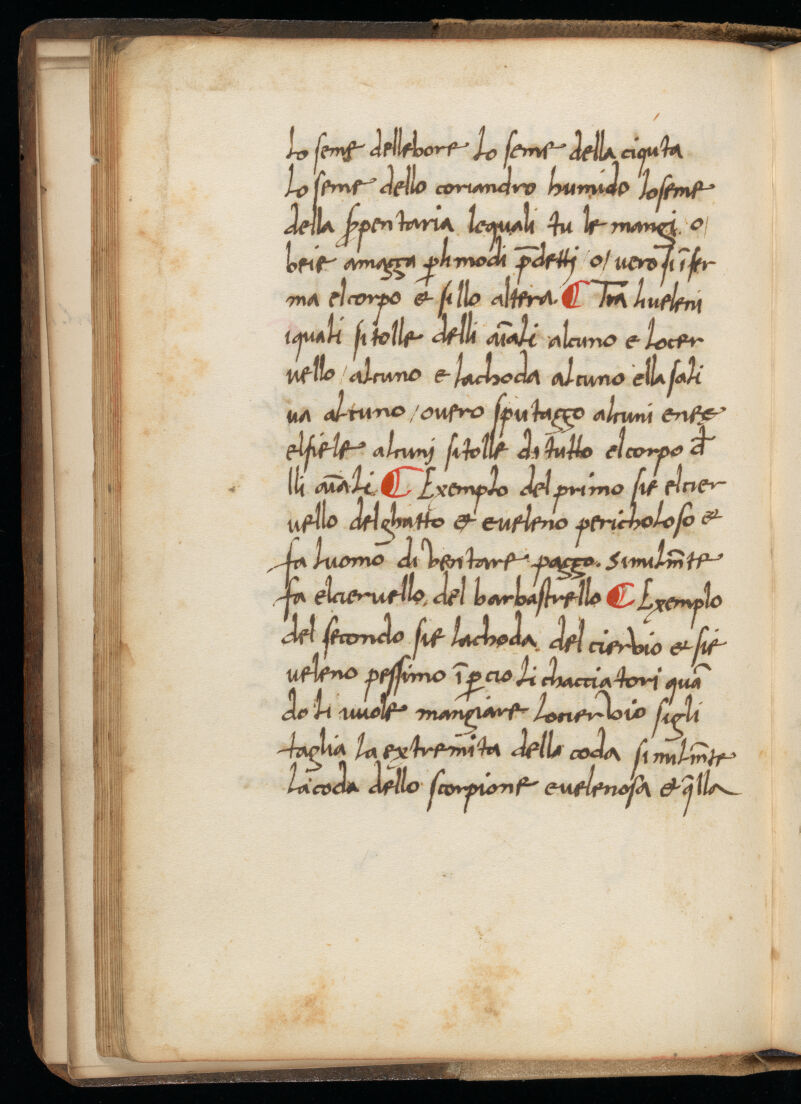 lo seme dellebore lo seme della ciquta
lo seme dello coriandro humido lo seme
della s̄pentaria lequali tu le mangi o/
beie amagga p̱ li modi p̄detti /o/ vero si īfer
ma el corpo & si llo altera ¶ Tra li veleni
iquali si tolle delli aīali alcuno e lo cer
vello / alcuno e la choda alcuno e lla sali
va alcuno / overo sputaggo alcuni ene e
el fiele alcuni si tolle di tutto el corpo d̄
lli aīali ¶ Exemplo del primo sie el cier
vello del ghatto & e veleno pericholoso &
fa luomo diventare paggo. Similm̄te
fa el ciervello del barbastrello ¶ Exemplo
del secondo sie la choda del ciervio & sie
veleno pessimo īp̱cio li chacciatori quā
do li vuole mangiare lo ciervio si gli
taglia la extremita della coda similm̄te
la coda dello scorpione e velenosa & q̄lla